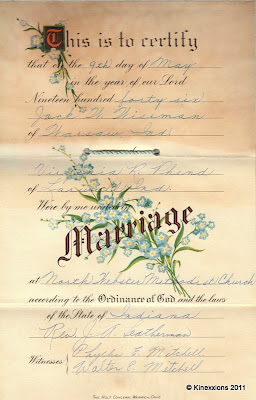 This is to certify
that on the 9th day of May
in the year of our Lord
Nineteen hundred forty six
Jack W. Wiseman
of Warsaw Ind.
Virginia R. Phend
of Ind.
Were by me united in
Marriage
at North Webster Methodist Church
according to the Ordinance of God and the laws
of the State of Indiana
Rev. J. A. Leatherman
Witnesses Phyllis E. Mitchell
Walter E. Mitchell
© Kinexxions 2011